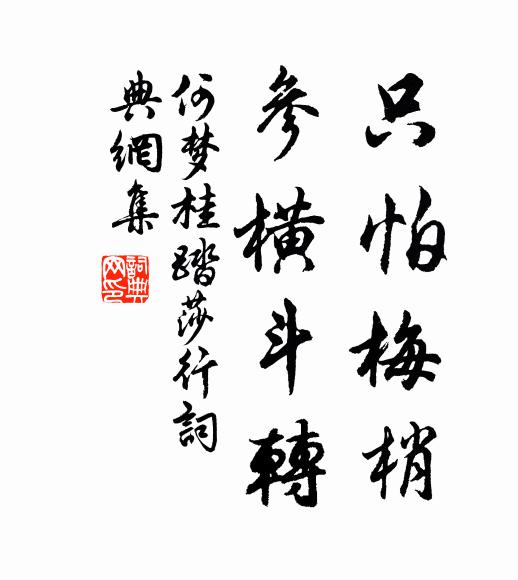 只怕梅梢
參橫斗轉
何梦桂踏莎行詞
典網集
詞典网印